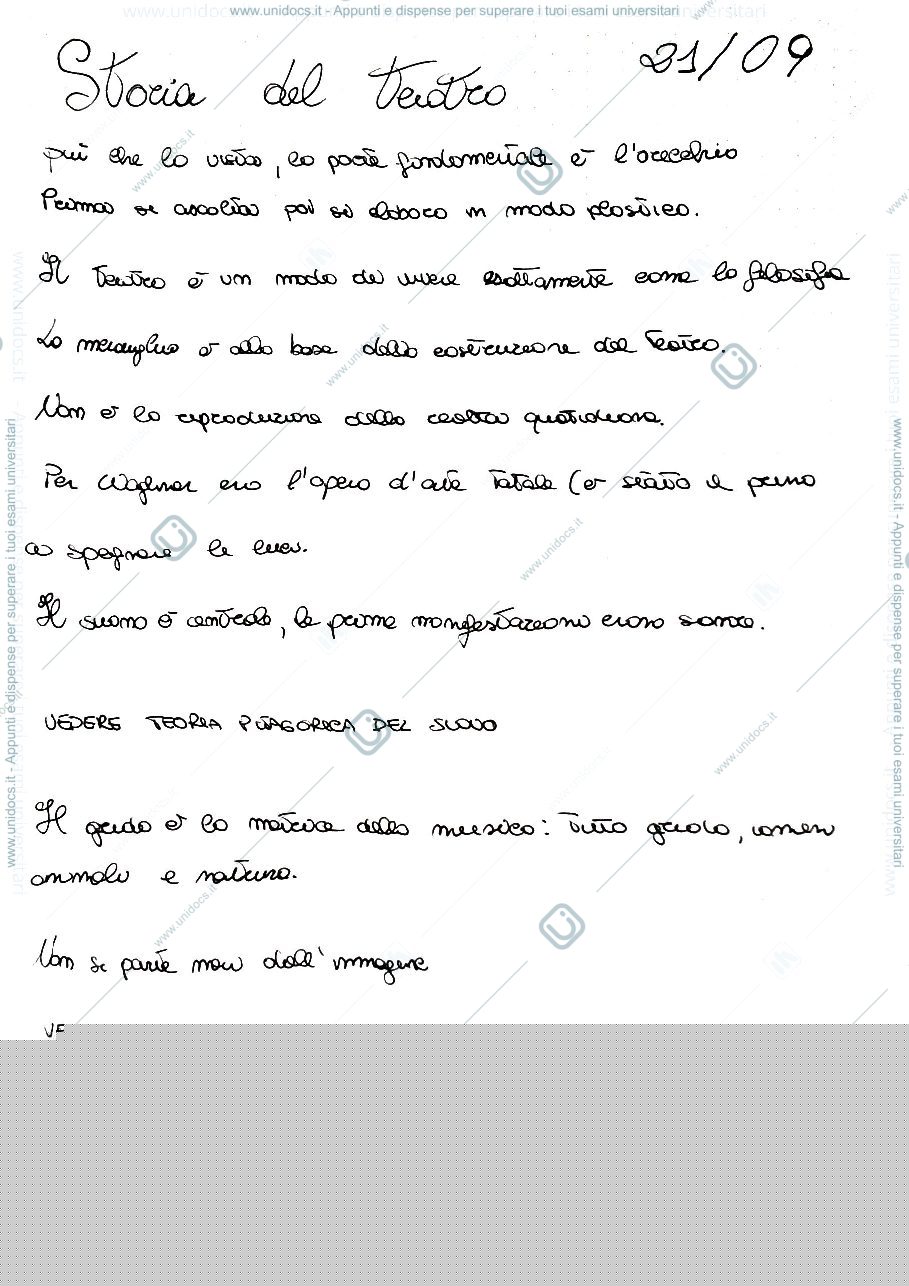 www.unidocs.it - Appunti e dispense per superare i tuoi esami universitari
Storia del Teatro 21/09
più che la vista, la parte fondamentale è l'orecchio
Prima si ascolta poi si elabora in modo plastico.
Il Teatro è un modo di vivere esattamente come la filosofia
La meraviglia è alla base della costruzione del Teatro.
Non è la riproduzione della realtà quotidiana.
Per Wagner era l'opera d'arte Totale (è stato il primo
a spegnere le luci.
Il suono è centrale, le prime manifestazioni erano sonore.
VEDERE TEORIA PITAGORICA DEL SUONO
Il grido è la matrice della musica: Tutto grida, uomini
animali e natura.
Non si parte mai dall'immagine
VE
www.unidocs.it - Appunti e dispense per superare i tuoi esami universitari
www.unidocs.it - Appunti e dispense per superare i tuoi esami universitari